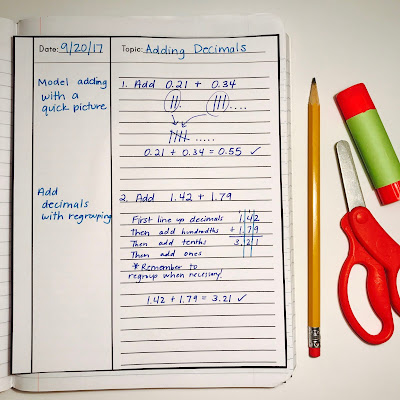 Date: 9/20/17 Topic: Adding Decimals
Model adding
with a
quick picture
1. Add 0.21 + 0.34
0.21 + 0.34 = 0.55 ✓
Add
decimals
with regrouping
2. Add 1.42 + 1.79
First line up decimals 1.42
Then add hundredths + 1.79
Then add tenths 3.21
Then add ones
*Remember to
regroup when necessary!
1.42 + 1.79 = 3.21 ✓